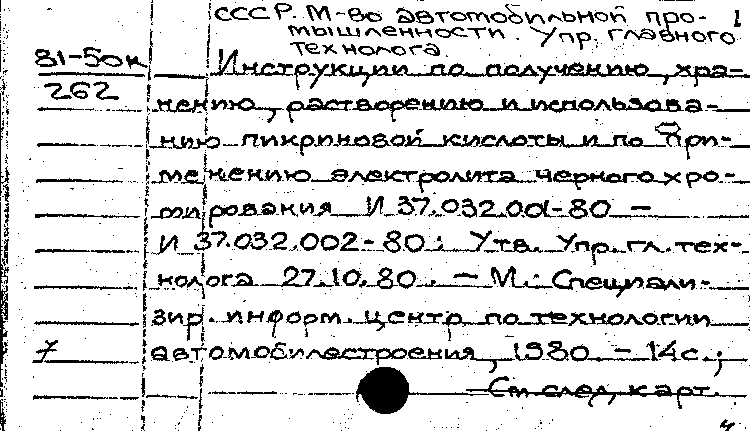 СССР. М-во автомобильной про- 1
мышленности. Упр. главного
технолога
81-50к Инструкции по получению, хра-
262 нению, растворению и использова-
нию пикриновой кислоты и по при-
менению электролита черного хро-
мирования И 37.032.001-80 —
И 37.032.002-80: Утв. Упр. гл. тех-
нолога 27.10.80. — М.: Специали-
зир. информ. центр по технологии
7 автомобилестроения, 1980. — 14с.;
См след. карт.